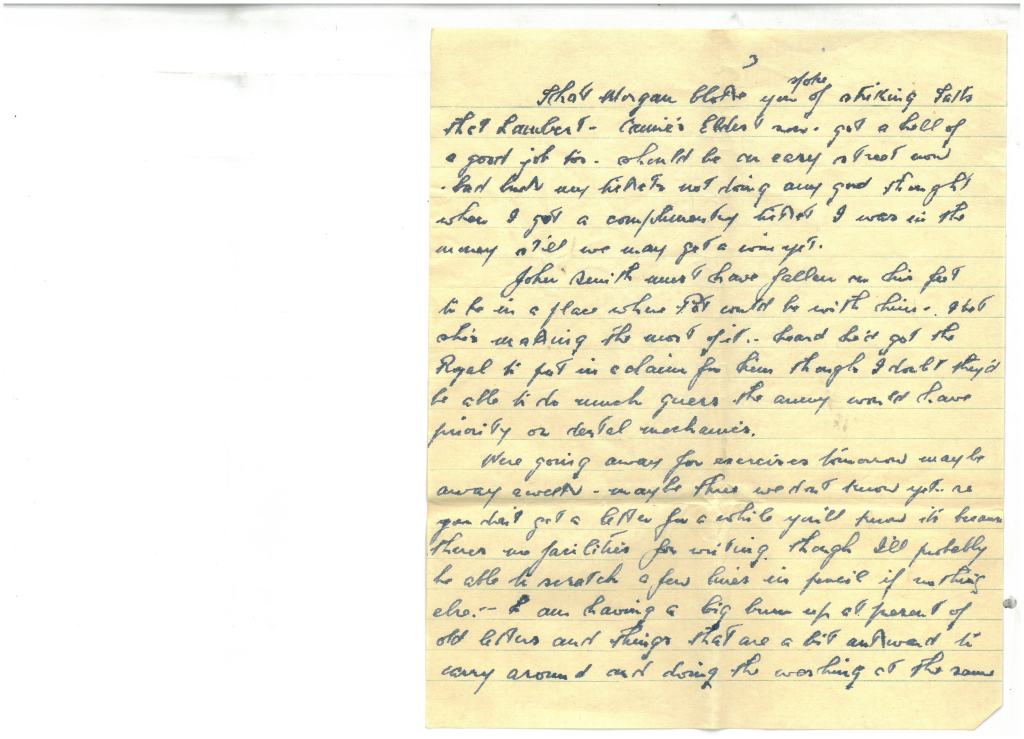 3
spoke
That Morgan bloke you of striking Talks
that Lambert - Carrie's Eldest now - got a hell of
a good job too - should be on easy street now
- bad luck my tickets not doing any good thought
when I got a complimentry ticket I was in the
money still we may get a win yet.
John Smith must have fallen on his feet
to be in a place where Pat could be with him -. I bet
she's making the most of it.- heard he'd got the
Royal to put in a claim for him though I doubt they'd
be able to do much guess the army would have
priority on dental mechanics.
Were going away for exercises tomorrow maybe
away a week - maybe three we dont know yet - so
you don't get a letter for a while you'll know its because
theres no facilities for writing though I'll probably
be able to scratch a few lines in pencil if nothing
else. - I am having a big burn up at present of
old letters and things that are a bit awkward to
carry around and doing the washing at the same